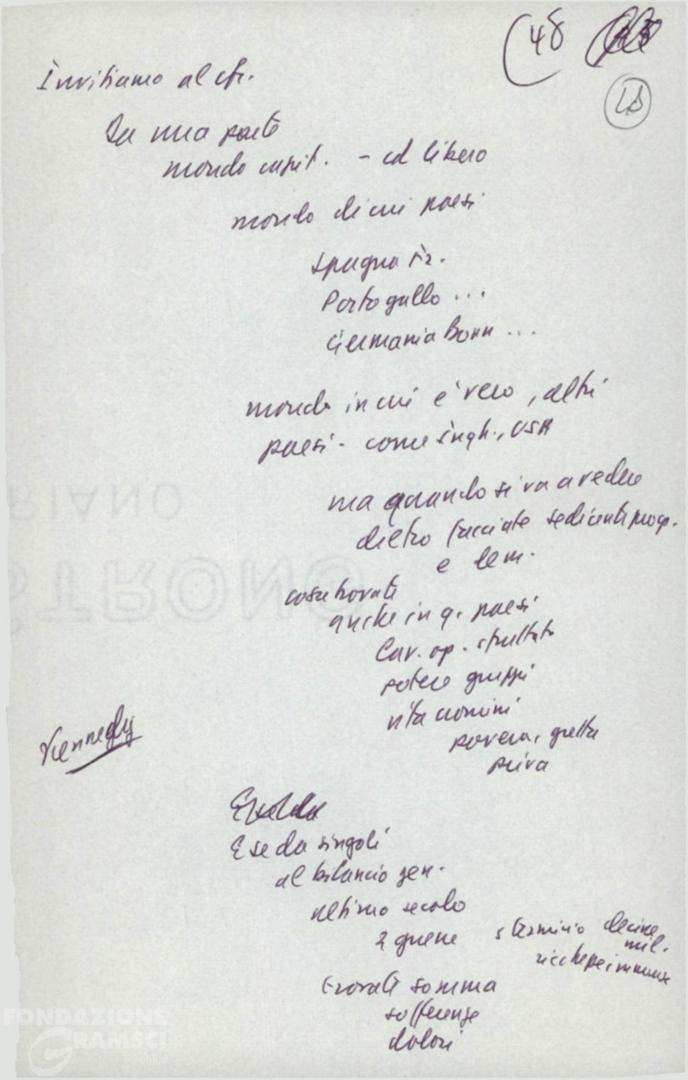 (48
18
Invitiamo al cfr.
Da una parte
mondo capit. - cd libero
mondo di cui paesi
Spagna fr.
Portogallo ...
Germania Bonn ...
mondo in cui è vero, altri
paesi - come Ingh., USA
ma quando si va a vedere
dietro facciate sedicenti progr.
e dem.
cosa trovate
anche in q. paesi
lav. op. sfruttato
potere gruppi
vita uomini
povera, gretta
priva
Kennedy
E se da singoli
al bilancio gen.
ultimo secolo
2 guerre sterminio decine
mil.
ricchezze immense
trovate somma
sofferenze
dolori
RIANO
STRONG
FONDAZIONE
GRAMSCI